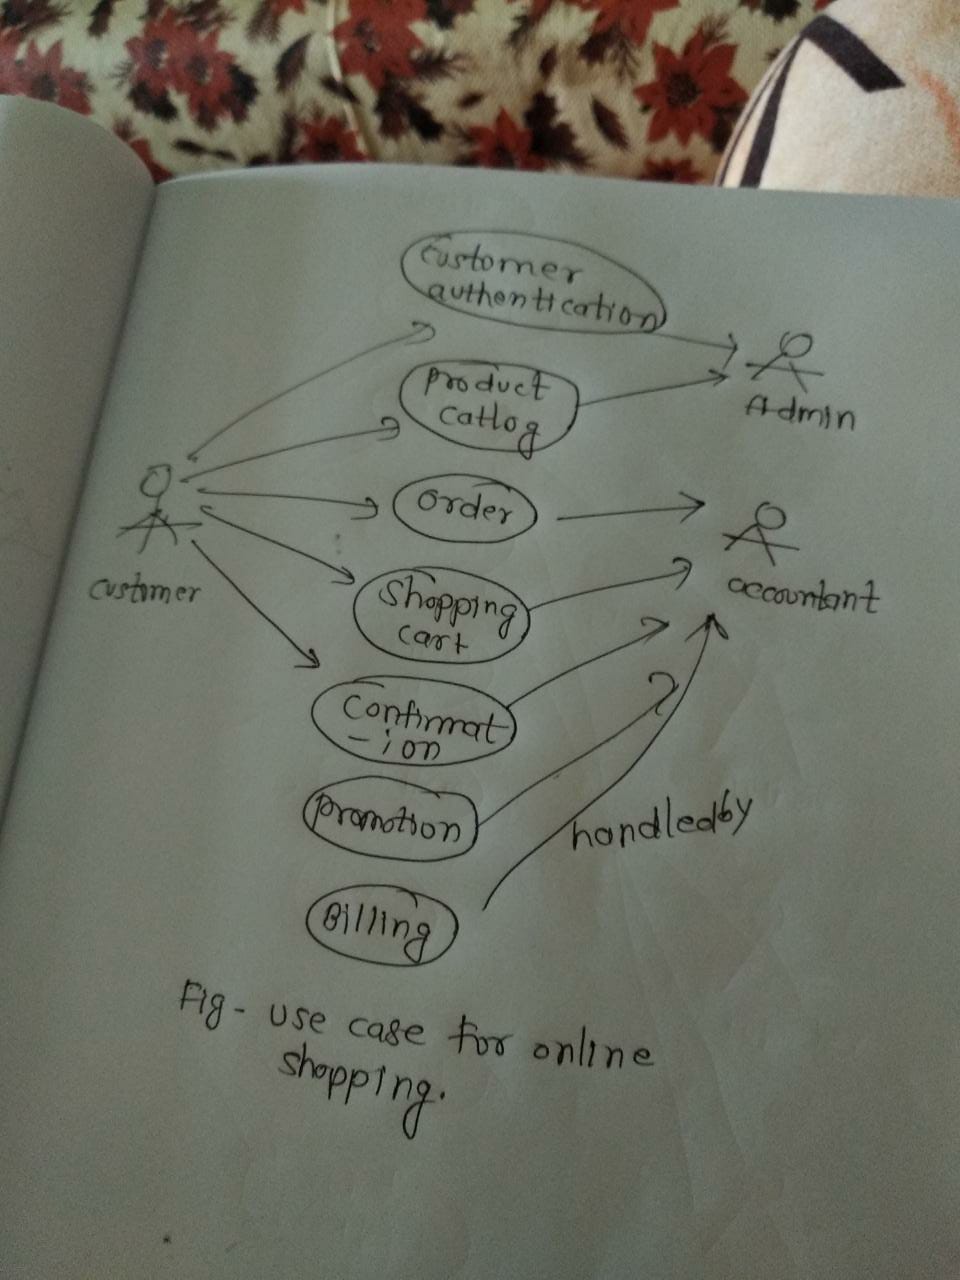 customer
authentication
Admin
product
catlog
order
accountant
customer
shopping
cart
confirmat
-ion
promotion
handledby
Billing
Fig- use case for online
shopping.